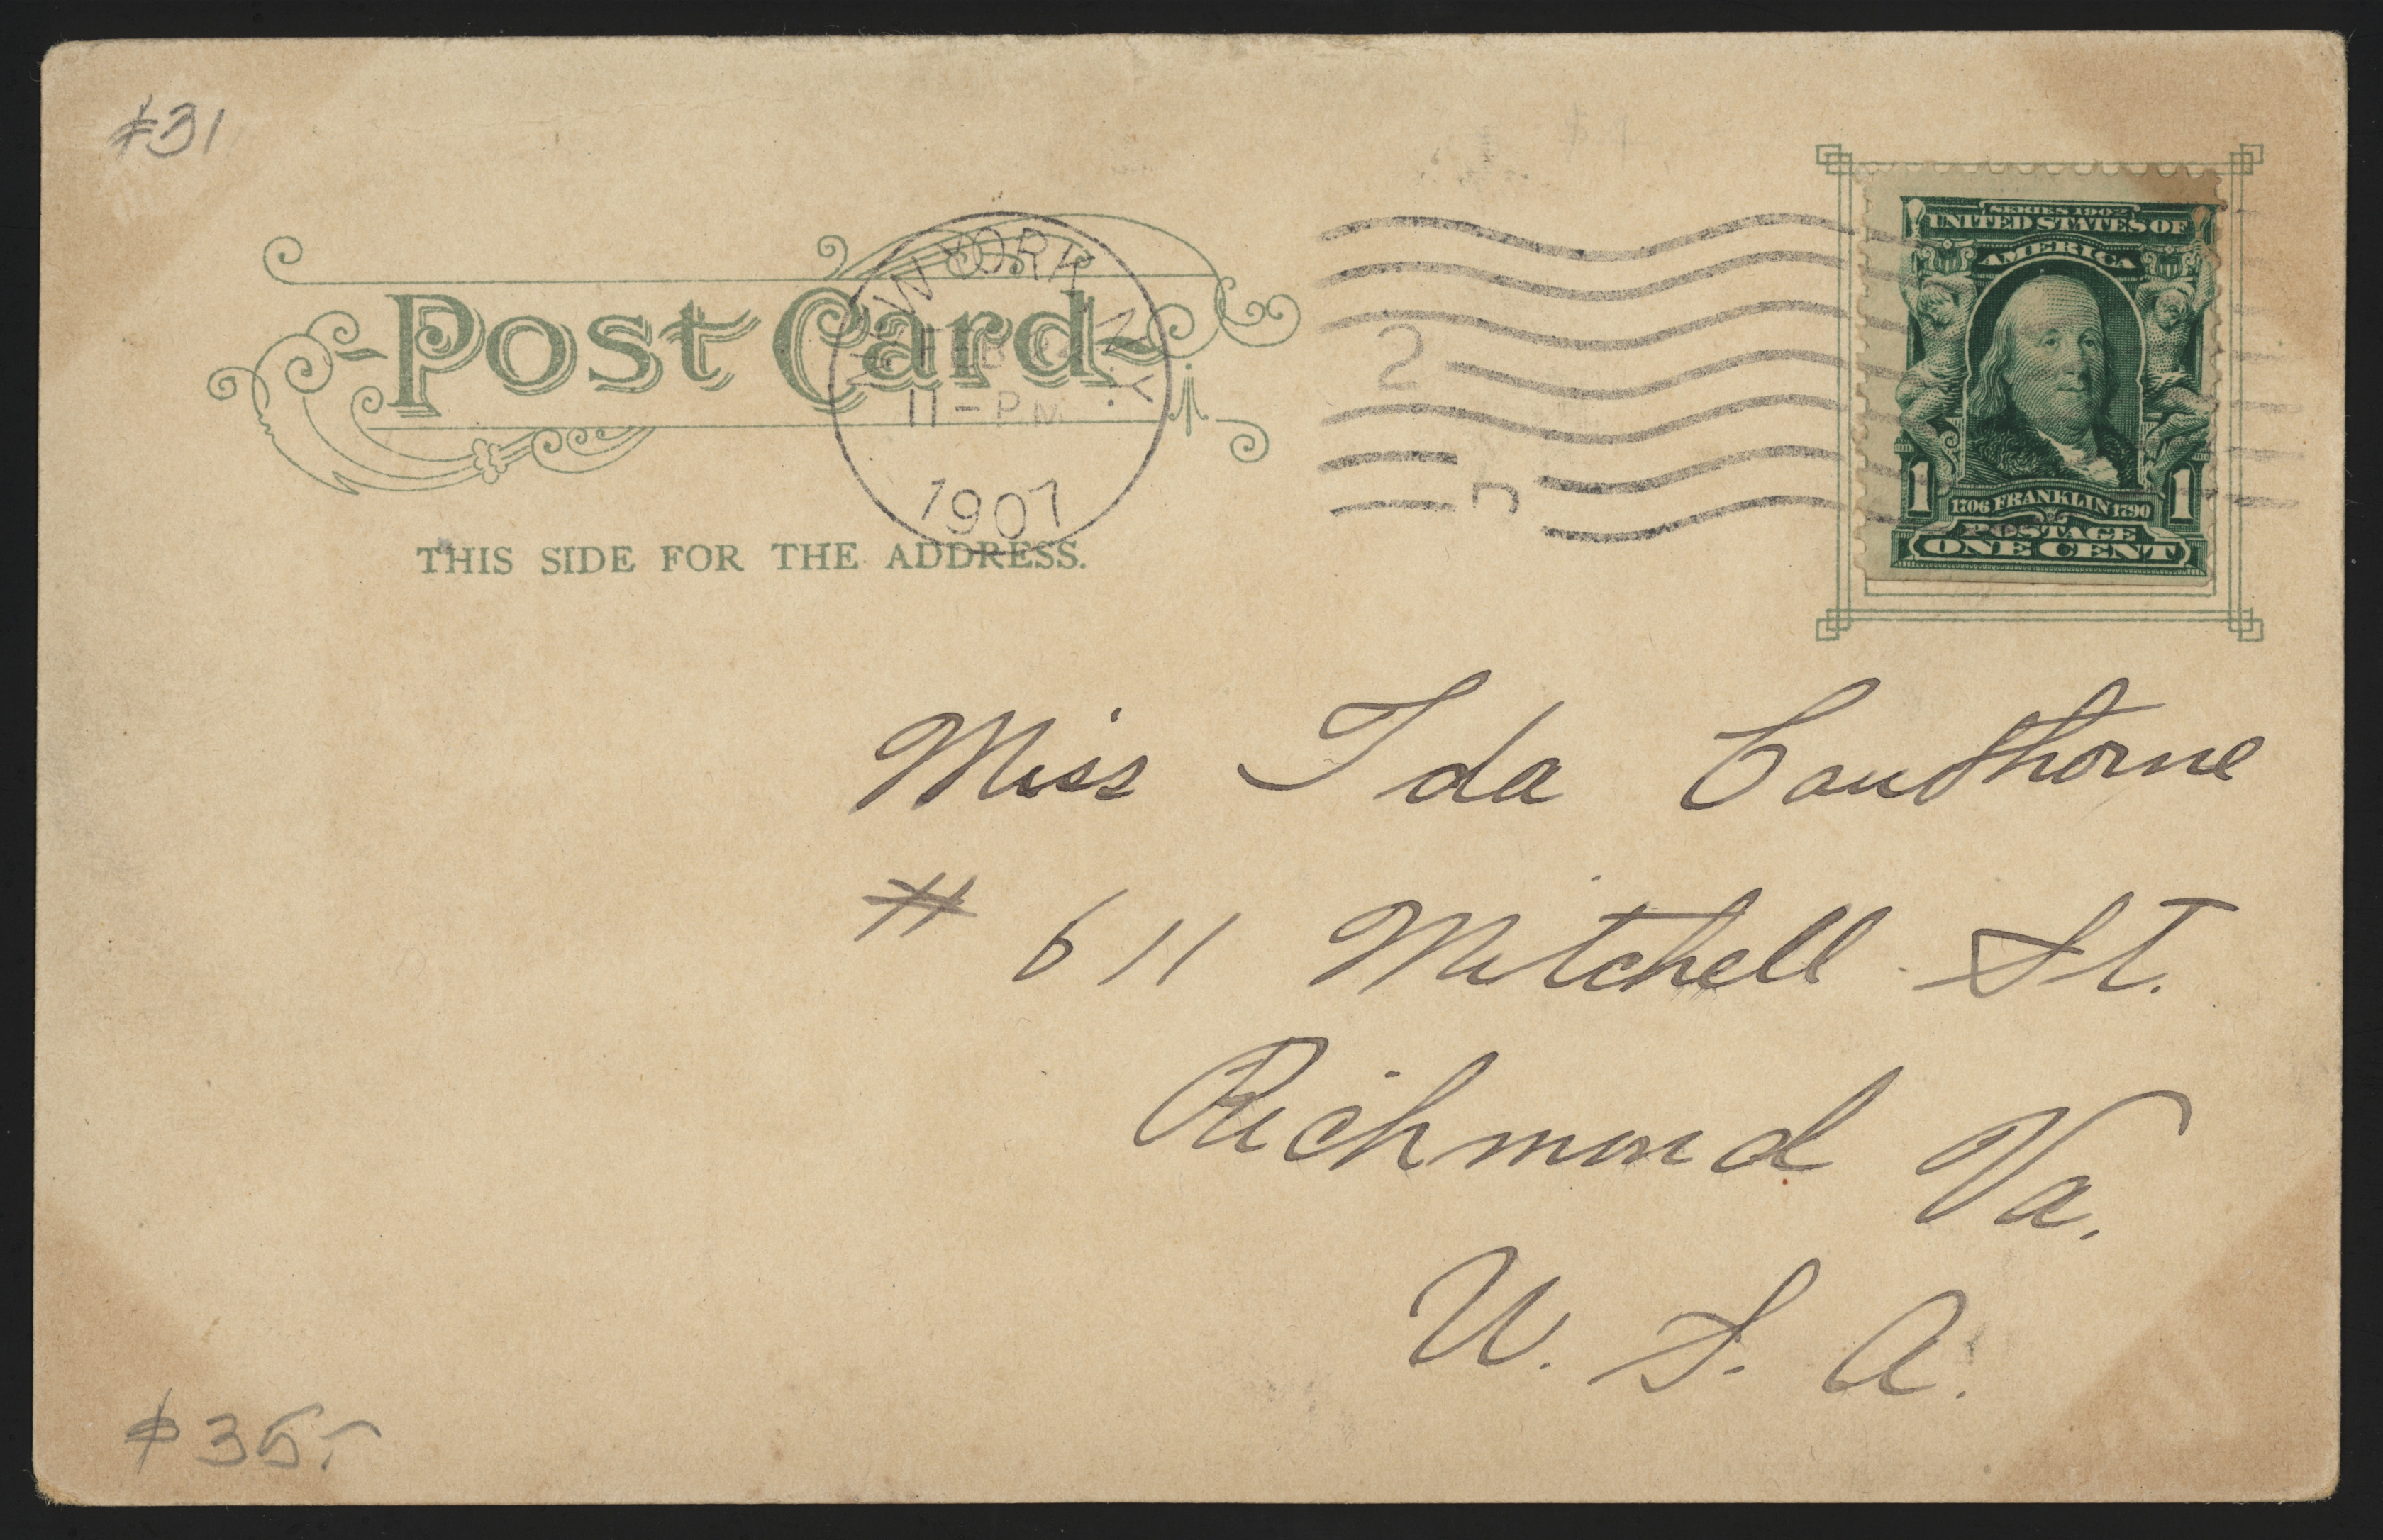 #31
NEW YORK, N.Y.
11-PM
1907
Post Card
THIS SIDE FOR THE ADDRESS.
2
SERIES 1902
UNITED STATES OF
AMERICA
1 1706 FRANKLIN 1790 1
POSTAGE
ONE CENT
Miss Ida Cawthorne
# 611 Mitchell St.
Richmond Va.
U. S. A.
$35-